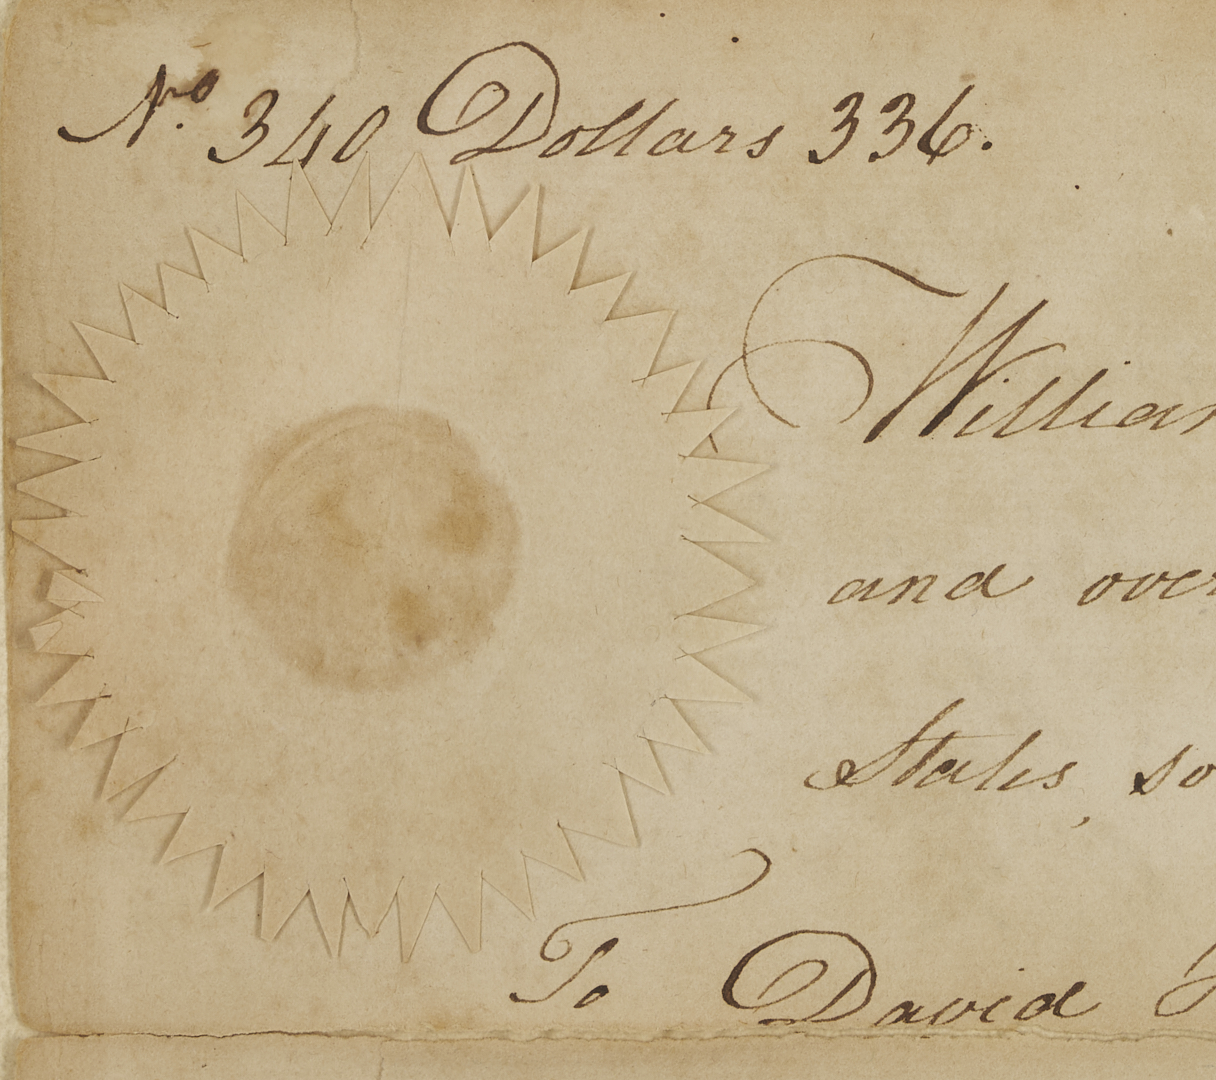 No. 340 Dollars 336.
William
and over
States, so
To David